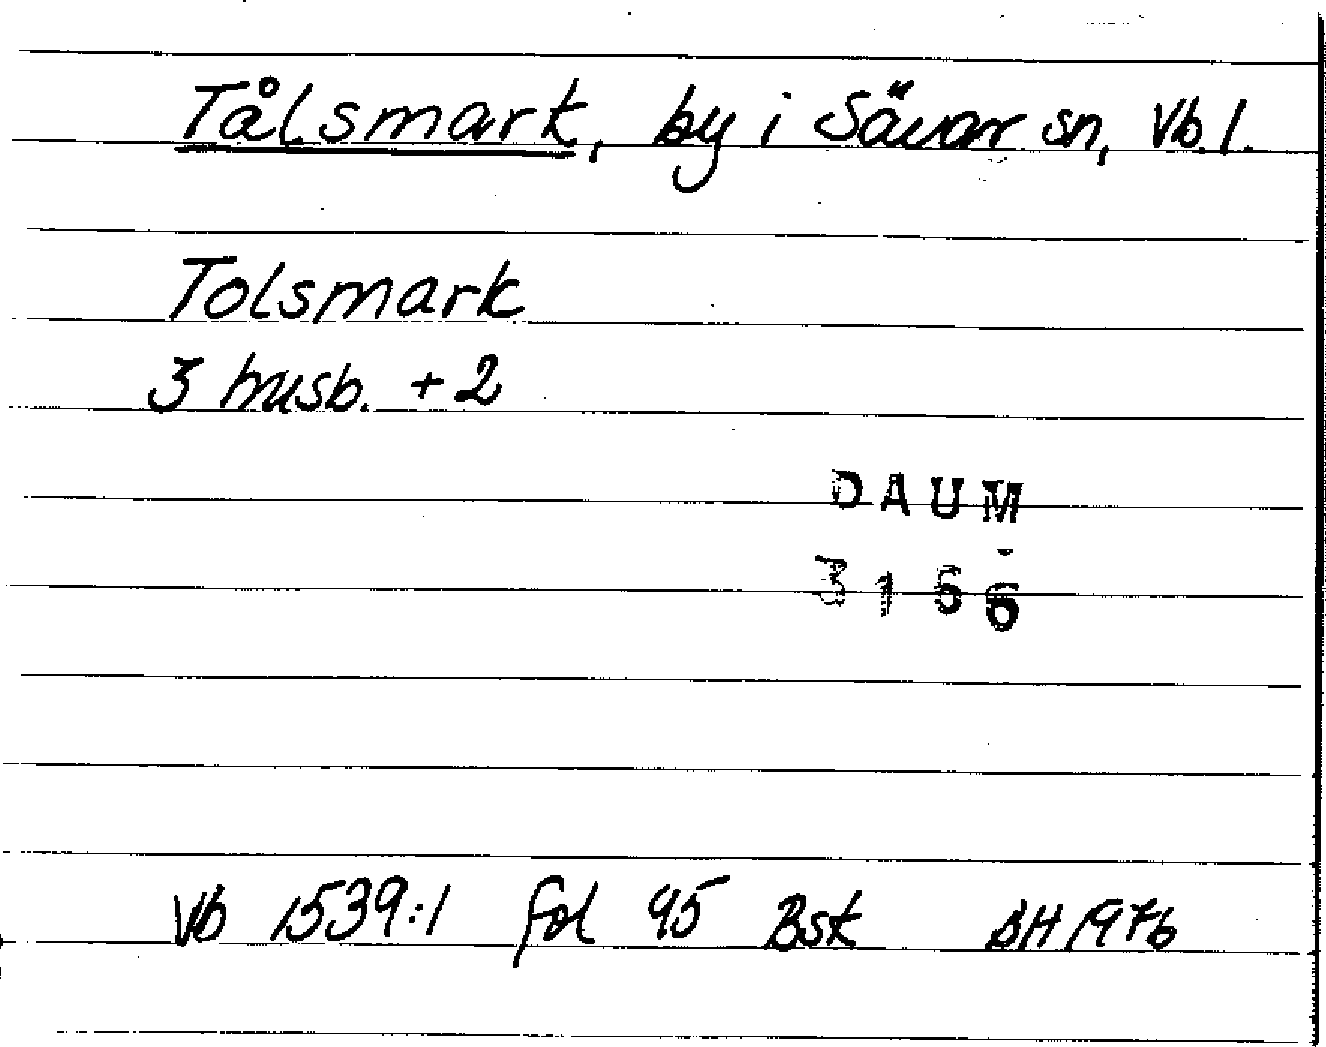 Tålsmark, by i Sävar sn, Vb. l.
Tolsmark
3 husb. + 2
DAUM
3166
Vb 1539:1 fol 95 Bsk BH 1976